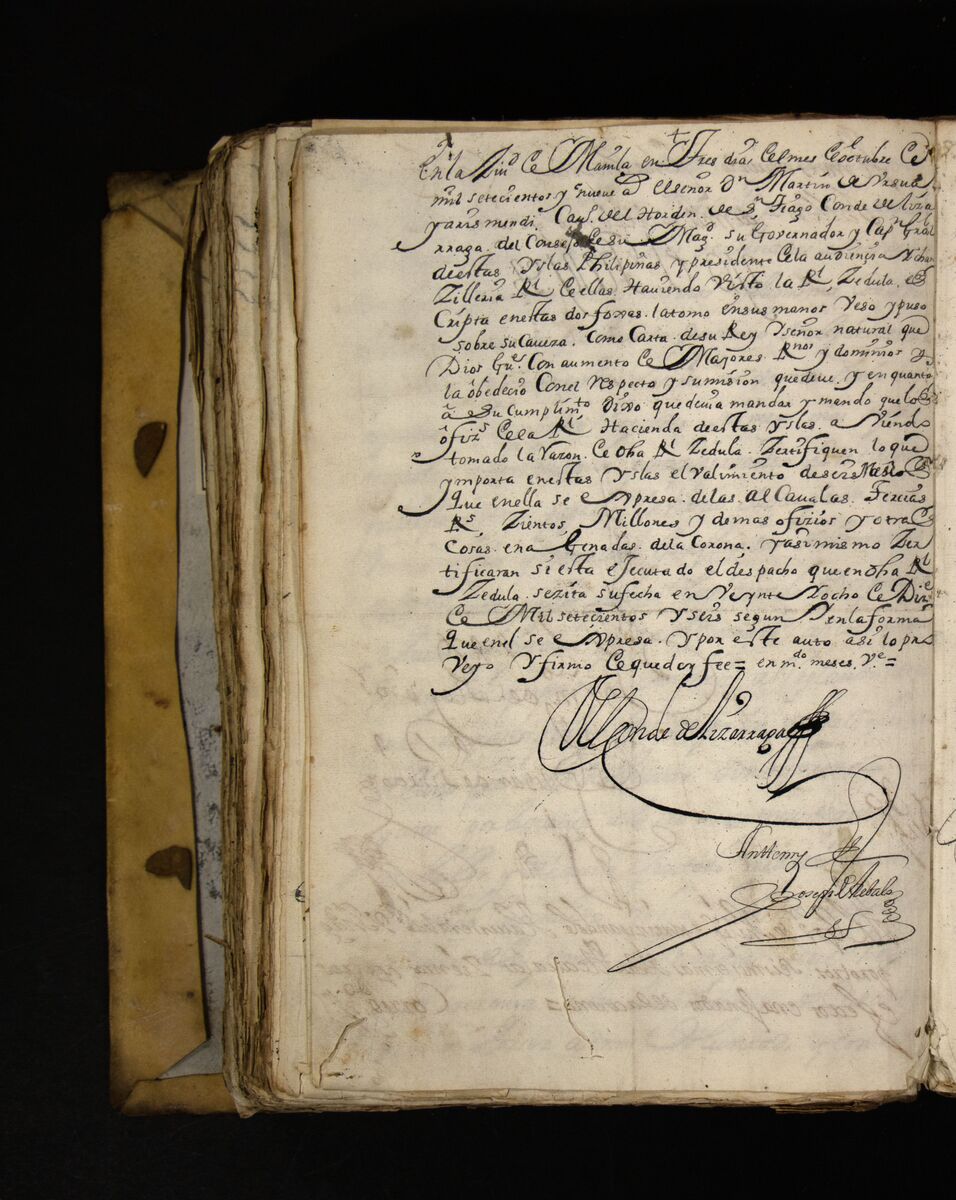 +
En la Ziud de Manila en Tres dias del mes de octubre de
mil setecientos y nueve as el señor Dn Martin de Vrsua
y arismendi Cauo del Horden de Sn Tiago Conde de liza
rraga del Consejo de su Magd su Governador y Capn Gral
de estas yslas Philipinas y presidente de la audiençia y chan
Zilleria Rl de ellas Hauiendo Visto la Rl Zedula es
Cripta en estas dos foxas la tomo en sus manos veso y puso
sobre su Caveza Como Carta de su Rey y señor natural que
Dios Gue Con aumento de Mayores Rnos y dominios y
la obedecio Con el respecto y sumision que deve y en quanto
a su Cumplimto Dixo que devia mandar y mando que los
ofizs de la Rl Hacienda de estas yslas aviendo
tomado la razon de dha Rl Zedula Zertifiquen lo que
ymporta en estas yslas el valimiento de seis Meses
que en ella se expresa de las alcavalas Tercias
Rs Zientos Millones y demas ofizios y otras
Cosas enagenadas de la Corona, y asi mismo Zer
tificaran si esta executado el despacho que en dha Rl
Zedula se zita su fecha en veynte y ocho de Dize
de Mil setecientos y seis segun y en la forma
que en el se expresa y por este auto asi lo pro
veyo y firmo de que doy fee = en mdo meses ve =
El Conde de Lizarraga
Antte my
Joseph